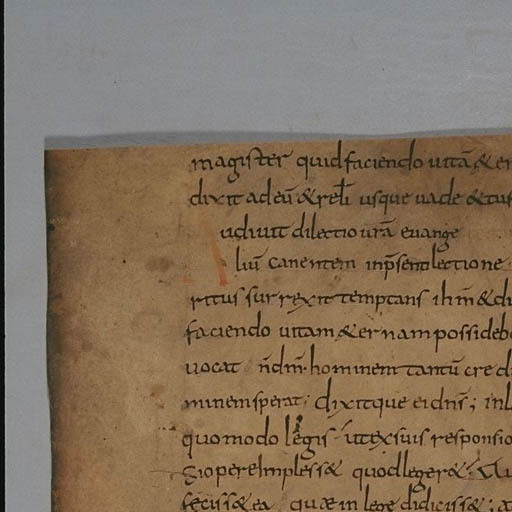 magister quid faciendo uitā & er
dixit ad eū & rel̄i usque uade & tu s
Audiuit dilectio urā euange
liū canentem in p̄senti lectione
ritus surrexit temptans ihm̄ & di
faciendo uitam & ernam possideb
uocat n̄ dm̄ · hominem tantū cred
minem sperat · dixitque ei dn̄s ; in l
quomodo legis · ut ex suis responsio
gi opere impless& quod leger& ·
feciss& ea quæ in lege didiciss& ;